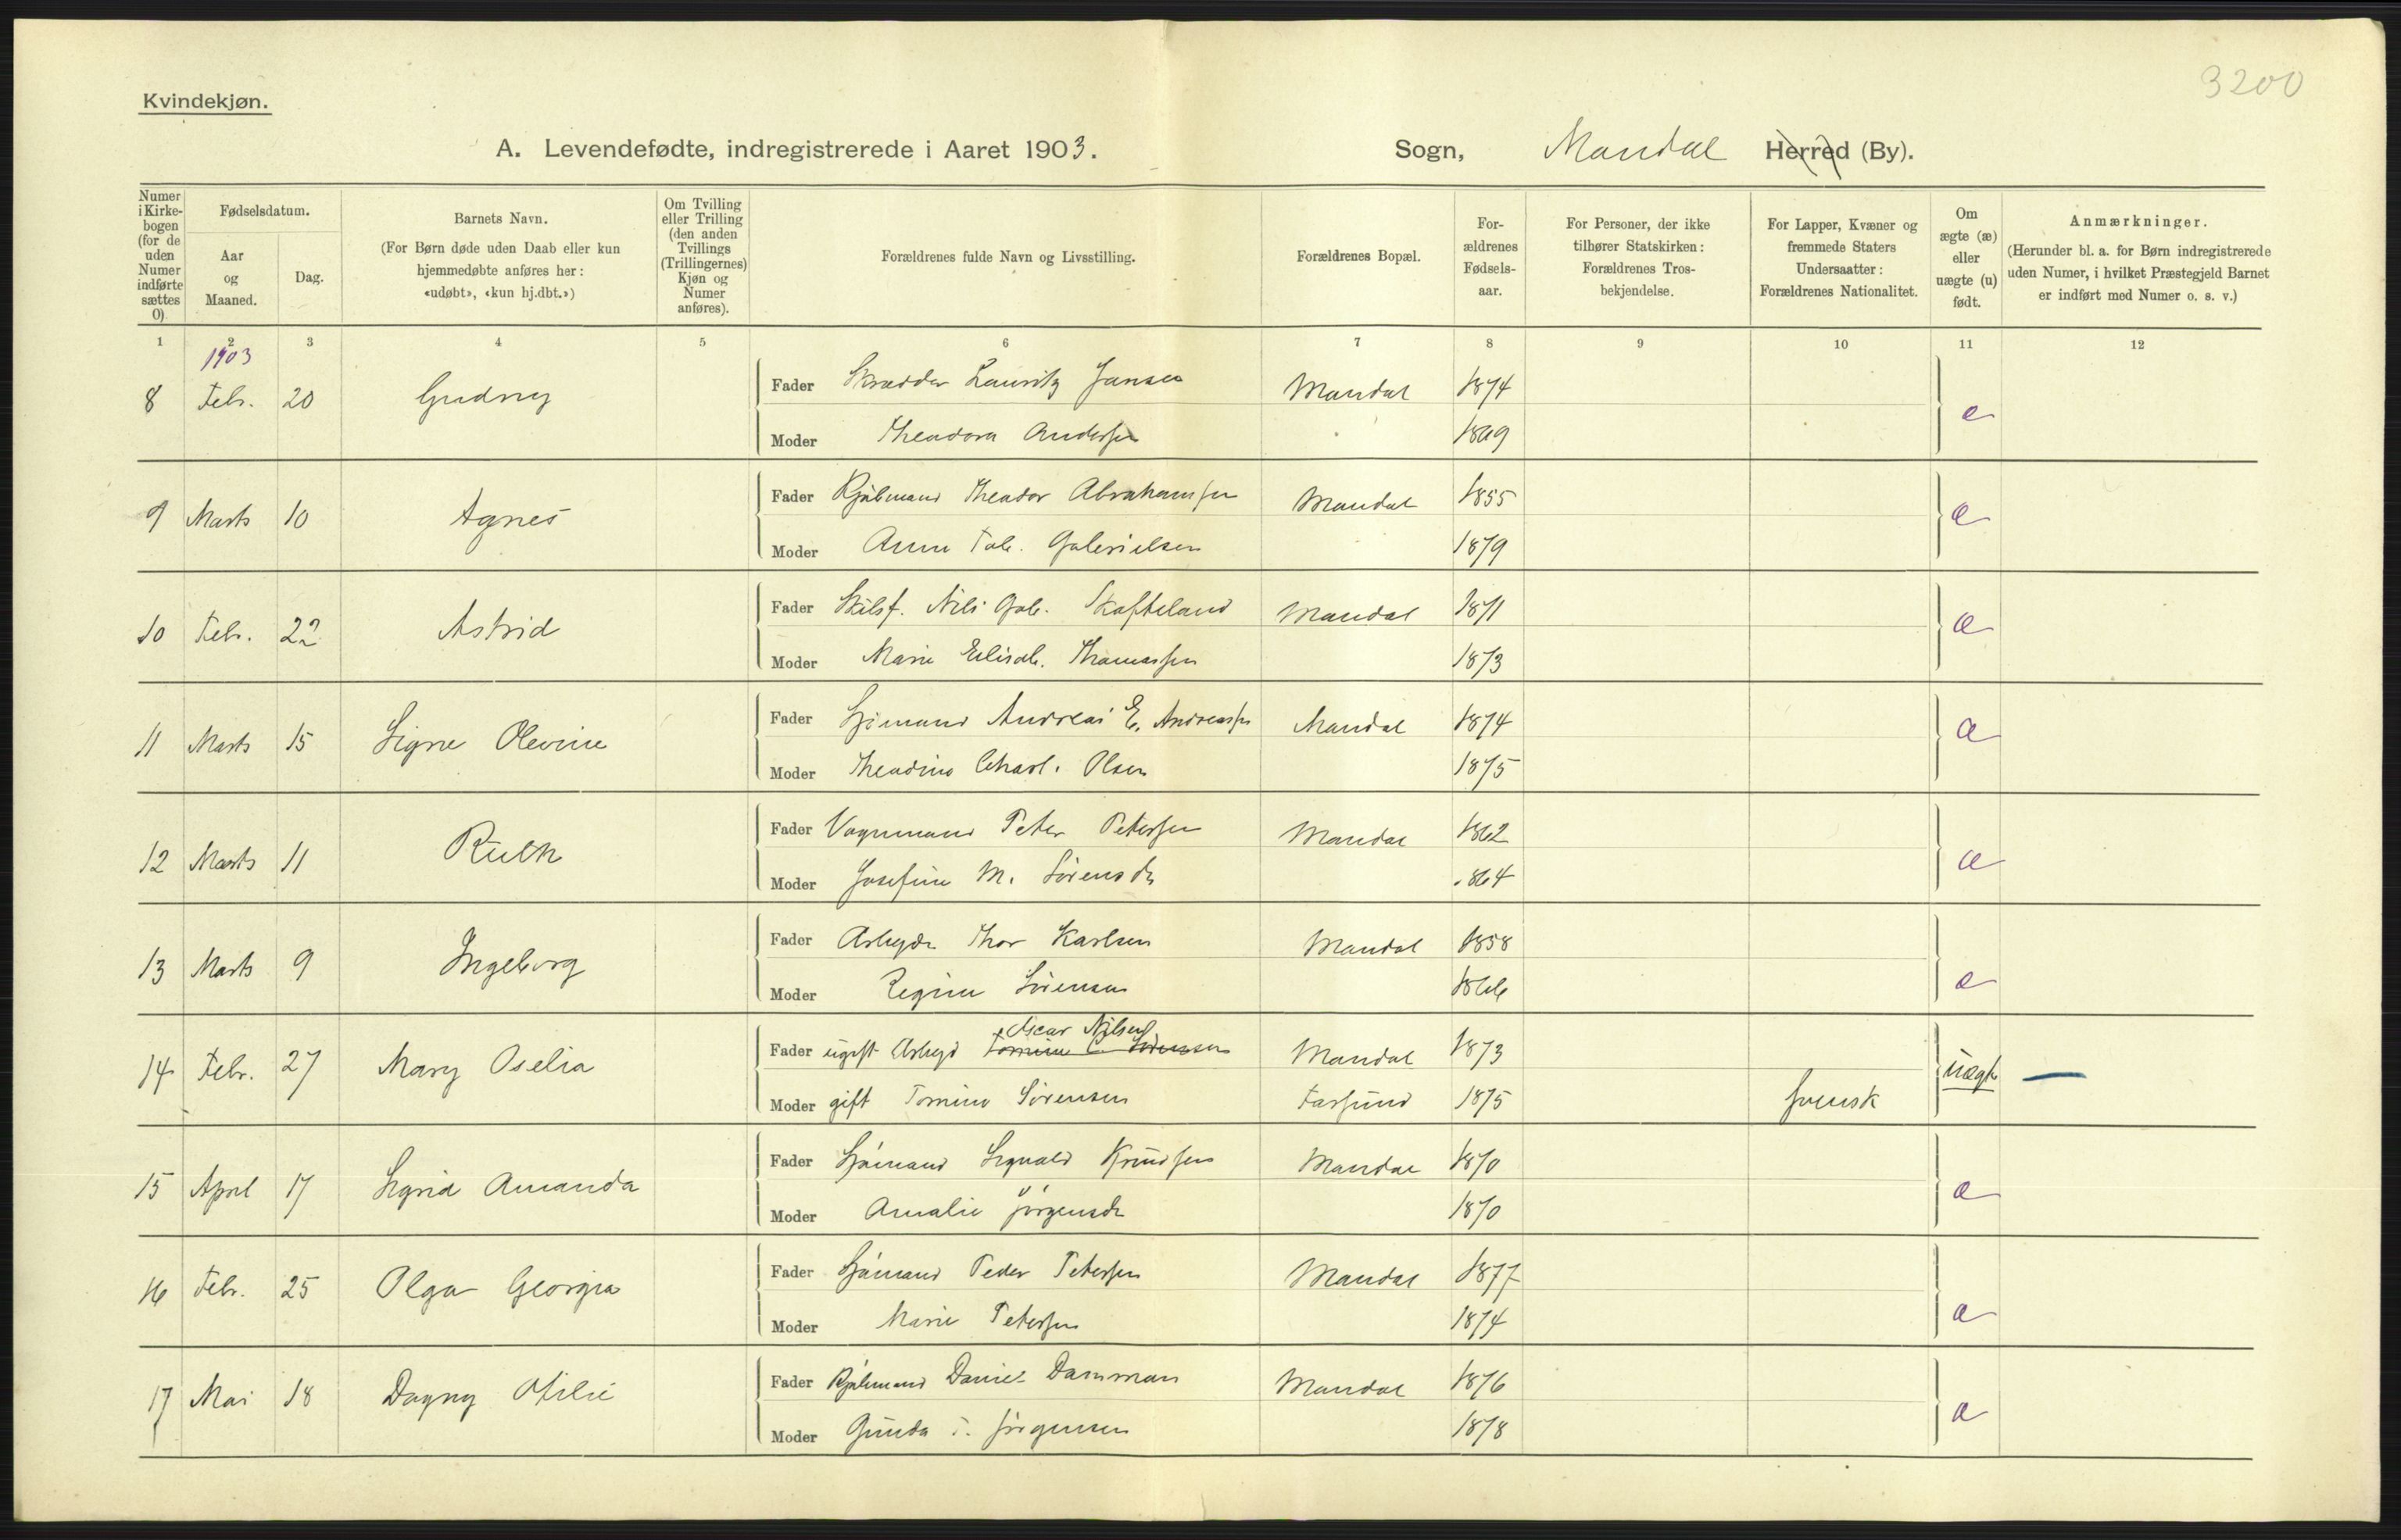 3200
Kvindekjøn.
A. Levendefødte, indregistrerede i Aaret 1903. Sogn, Mandal Herred (By).
Numer i Kirke-bogen (for de uden Numer indførte sættes 0)
Fødselsdatum.
Aar og Maaned.
Dag.
Barnets Navn.
(For Børn døde uden Daab eller kun
hjemmedøbte anføres her:
«udøbt», «kun hj.dbt.»)
Om Tvilling
eller Trilling
(den anden
Tvillings
(Trillingernes)
Kjøn og
Numer
anføres).
Forældrenes fulde Navn og Livsstilling.
Forældrenes Bopæl.
For-
ældrenes
Fødsels-
aar.
For Personer, der ikke
tilhører Statskirken:
Forældrenes Tros-
bekjendelse.
For Lapper, Kvæner og
fremmede Staters
Undersaatter:
Forældrenes Nationalitet.
Om
ægte (æ)
eller
uægte (u)
født.
Anmærkninger.
(Herunder bl. a. for Børn indregistrerede
uden Numer, i hvilket Præstegjeld Barnet
er indført med Numer o. s. v.)
1 2 3 4 5 6 7 8 9 10 11 12
1903
8 Febr. 20 Gudny Fader Skrædder Lauritz Jansen Mandal 1874 æ
Moder Theodora Andersen 1869
9 Marts 10 Agnes Fader Kjøbmand Theodor Abrahamsen Mandal 1855 æ
Moder Anna Tob. Gabrielsen 1879
10 Febr. 22 Astrid Fader Nils Gab. Skofteland Mandal 1871 æ
Moder Marie Elisab. Thomassen 1873
11 Marts 15 Signe Olevine Fader Sjømand Andreas E. Andreassen Mandal 1874 æ
Moder Theodine Charl. Olsen 1875
12 Marts 11 Ruth Fader Vognmand Peter Petersen Mandal 1862 æ
Moder Josefine M. Sørensdr 1864
13 Marts 9 Ingeborg Fader Arbeydr Thor Karlsen Mandal 1858 æ
Moder Regine Sørensen 1866
14 Febr. 27 Mary Oselia Fader ugift Arbeyd Tomine C. Sørensen Oscar Nilsen Mandal 1873 uægte
Moder gift Tomine Sørensen Farsund 1875 svensk
15 April 17 Sigrid Amanda Fader Sjømand Sigvald Knudsen Mandal 1870 æ
Moder Amalie Jørgensdr 1870
16 Febr. 25 Olga Georgia Fader Sjømand Peder Petersen Mandal 1877 æ
Moder Marie Petersen 1874
17 Mai 18 Dagny Otilie Fader Kjøbmand Daniel Damman Mandal 1876 æ
Moder Gunda T. Jørgensen 1878